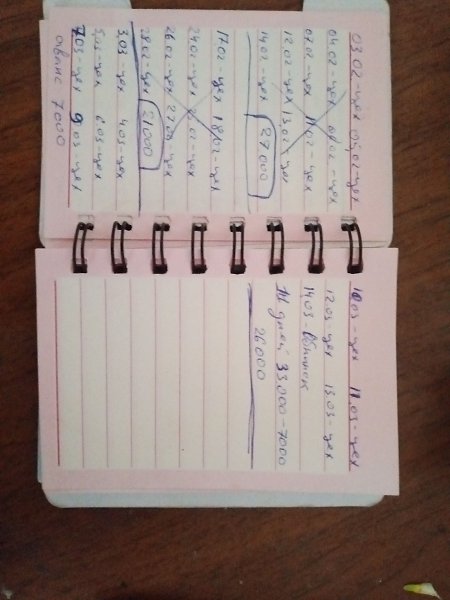 03.02 - цех 05.02 - цех
04.02 - цех 06.02 - цех
07.02 - цех 11.02 - цех
12.02 - цех 13.02 - цех
14.02 - цех 27000
17.02 - цех 18.02 - цех
24.02 - цех
26.02 - цех 27.02 - цех
28.02 - цех 21000
3.03 - цех 4.03 - цех
5.03 - цех 6.03 - цех
7.03 - цех 9.03 - цех
аванс 7000
10.03 - цех 11.03 - цех
12.03 - цех 13.03 - цех
14.03 -
11 дней 33000 - 7000
26000